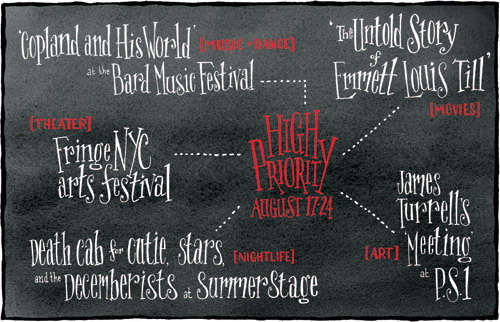 'Copland and His World' [MUSIC + DANCE]
at the Bard Music Festival
'The Untold Story
of
Emmett Louis Till'
[MOVIES]
[THEATER]
Fringe NYC
arts festival
HIGH
PRIORITY
AUGUST 17-24
Death Cab for Cutie, Stars, [NIGHTLIFE]
and the Decemberists at SummerStage
[ART]
James
Turrell's
'Meeting'
at
P.S.1